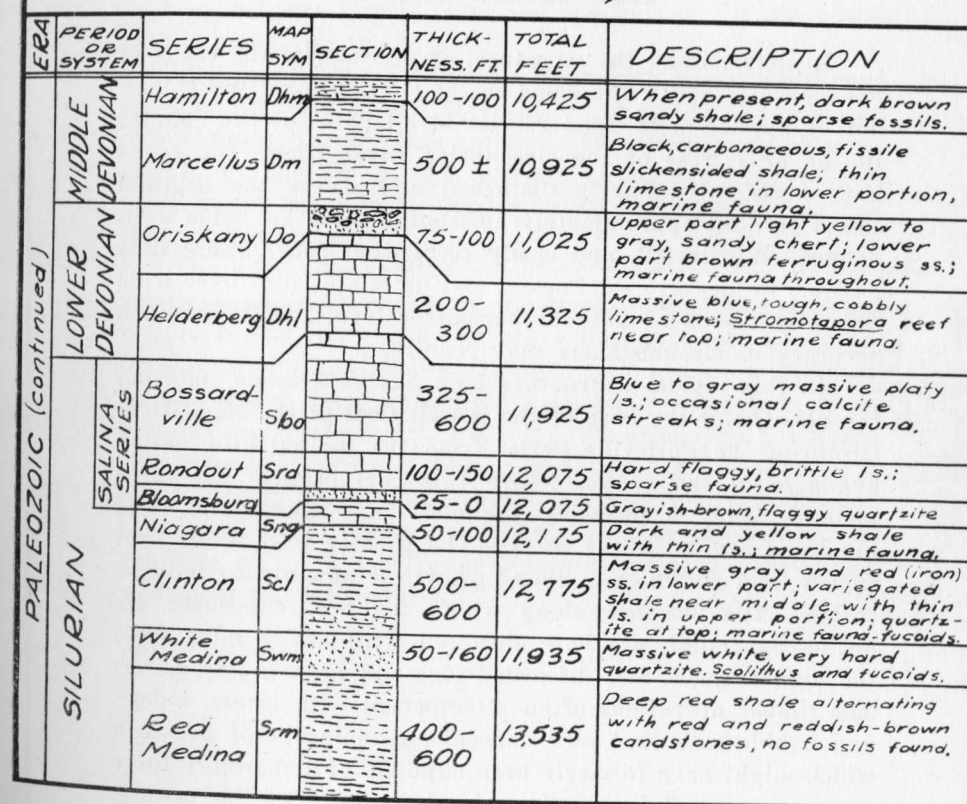 ERA
PERIOD
OR
SYSTEM
SERIES
MAP
SYM
SECTION
THICK-
NESS. FT.
TOTAL
FEET
DESCRIPTION
PALEOZOIC (continued)
MIDDLE
DEVONIAN
Hamilton Dhm 100-100 10,425
When present, dark brown
sandy shale; sparse fossils.
Marcellus Dm 500 ± 10,925
Black, carbonaceous, fissile
slickensided shale; thin
limestone in lower portion,
marine fauna.
LOWER
DEVONIAN
Oriskany Do 75-100 11,025
Upper part light yellow to
gray, sandy chert; lower
part brown ferruginous ss.;
marine fauna throughout.
Helderberg Dhl 200-
300 11,325
Massive blue, tough, cobbly
limestone; Stromotapora reef
near top; marine fauna.
SILURIAN
SALINA
SERIES
Bossard-
ville Sbo 325-
600 11,925
Blue to gray massive platy
ls.; occasional calcite
streaks; marine fauna.
Rondout Srd 100-150 12,075
Hard, flaggy, brittle ls.;
sparse fauna.
Bloomsburg 25-0 12,075
Grayish-brown, flaggy quartzite
Niagara Sng 50-100 12,175
Dark and yellow shale
with thin ls.; marine fauna.
Clinton Scl 500-
600 12,775
Massive gray and red (iron)
ss. in lower part; variegated
shale near middle, with thin
ls. in upper portion; quartz-
ite at top; marine fauna-fucoids.
White
Medina Swm 50-160 11,935
Massive white very hard
quartzite. Scolithus and fucoids.
Red
Medina Srm 400-
600 13,535
Deep red shale alternating
with red and reddish-brown
candstones; no fossils found.